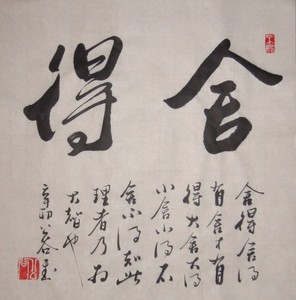 舍得
舍得舍得
有舍才有
得大舍大得
小舍小得不
舍不得知此
理者乃为
大智也